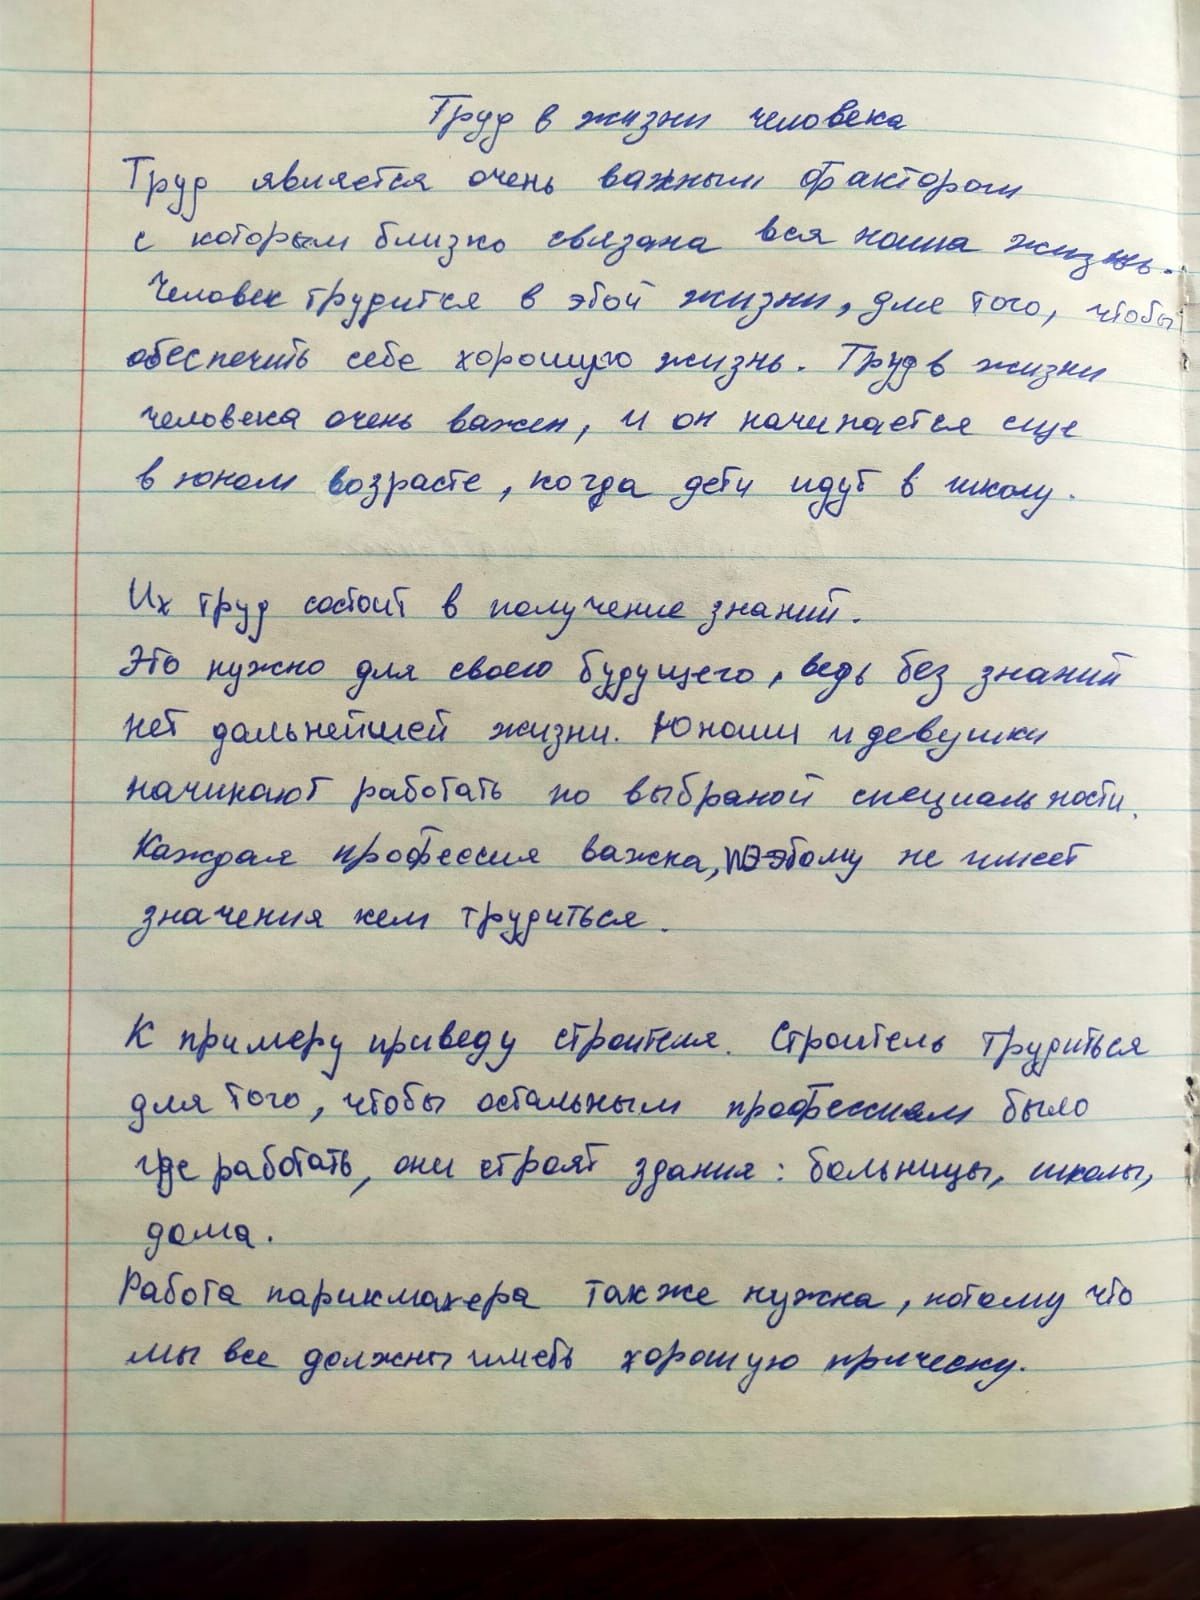 Труд в жизни человека
Труд является очень важным фактором
с которым близко связана вся наша жизнь.
Человек трудится в этой жизни, для того, чтобы
обеспечить себе хорошую жизнь. Труд в жизни
человека очень важен, и он начинается еще
в юном возрасте, когда дети идут в школу.
Их труд состоит в получение знаний.
Это нужно для своего будущего, ведь без знаний
нет дальнейшей жизни. Юноши и девушки
начинают работать по выбраной специальности.
Каждая профессия важна, поэтому не имеет
значения кем трудиться.
К примеру приведу строителя. Строитель трудиться
для того, чтобы остальным профессиям было
где работать, они строят здания: больницы, школы,
дома.
Работа парикмахера также нужна, потому что
мы все должны иметь хорошую прическу.